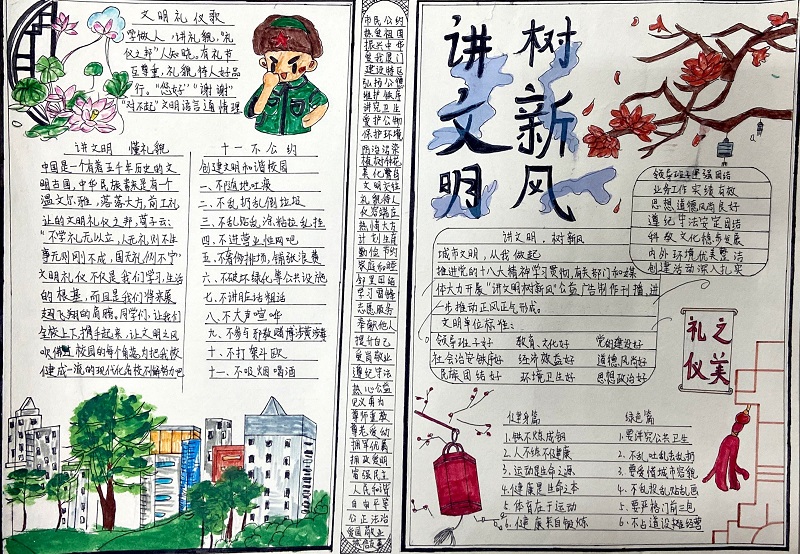 文明礼仪歌
学做人,讲礼貌,“礼
仪之邦”人知晓。有礼节
互尊重,礼貌待人好品
行。“您好”“谢谢”
“对不起”文明语言通情理
讲文明 懂礼貌
中国是一个有着五千年历史的文
明古国,中华民族素来是一个
温文尔雅,落落大方,前工礼
让的文明礼仪之邦,荀子云:
“不学礼无以立,人无礼则不生
事无礼则不成,国无礼则不宁”
文明礼仪不仅是我们学习,生活
的根基,而且是我们将来展
翅飞翔的肩膀。同学们,让我们
全校上下,携手起来,让文明之风
吹拂 校园的每个角落,为把我校
健成一流的现代化名校不懈努力吧
十一不公约
创建文明和谐校园
一、不随地吐痰
二、不乱扔乱倒垃圾
三、不乱贴乱涂粘拉乱挂
四、不进营业性网吧
五、不摆阔排场,铺张浪费
六、不破坏绿化等公共设施
七、不讲脏话粗话
八、不大声喧哗
九、不参与邪教赌博涉黄涉毒
十、不打架斗殴
十一、不吸烟喝酒
市民公约
热爱祖国
振兴中华
爱我厦门
建设特区
弘扬公德
维护秩序
讲究卫生
爱护公物
保护环境
防治污染
植树种花
美化鹭岛
文明交往
礼貌待人
伙若端庄
热情大方
计划生育
勤俭节约
家庭和睦
邻里团结
学习雷锋
志愿服务
奉献他人
提升自己
爱岗敬业
遵纪守法
热心公益
见义勇为
尊师重教
尊老爱幼
拥军优属
拥政爱明
富强民主
人民和谐
自由平等
公正法治
爱国敬业
诚信友善
讲文明
树新风
领导班子坚强团结
业务工作实绩有效
思想道德风尚良好
遵纪守法安定团结
科教文化稳步发展
内外环境优美整洁
创建活动深入扎实
讲文明,树新风
城市文明,从我做起
推进党的十八大精神学习贯彻,有关部门和媒
体大力开展“讲文明树新风”公益广告制作刊播,进
一步推动正风正气形成。
文明单位标准:
领导班子好 教育文化好 党的建设好
社会治安秩序好 经济效益好 道德风尚好
民族团结好 环境卫生好 思想政治好
礼仪
之美
健身篇
1.铁不炼成钢
2.人不练不健康
3.运动是生命之源
4.健康是生命之本
5.体育在于运动
6.健康来自锻炼
绿色篇
1.要讲究公共卫生
2.不乱吐乱丢乱扔
3.要爱惜城市容貌
4.不乱投乱贴乱画
5.要严格门前三包
6.不占道设摊经营